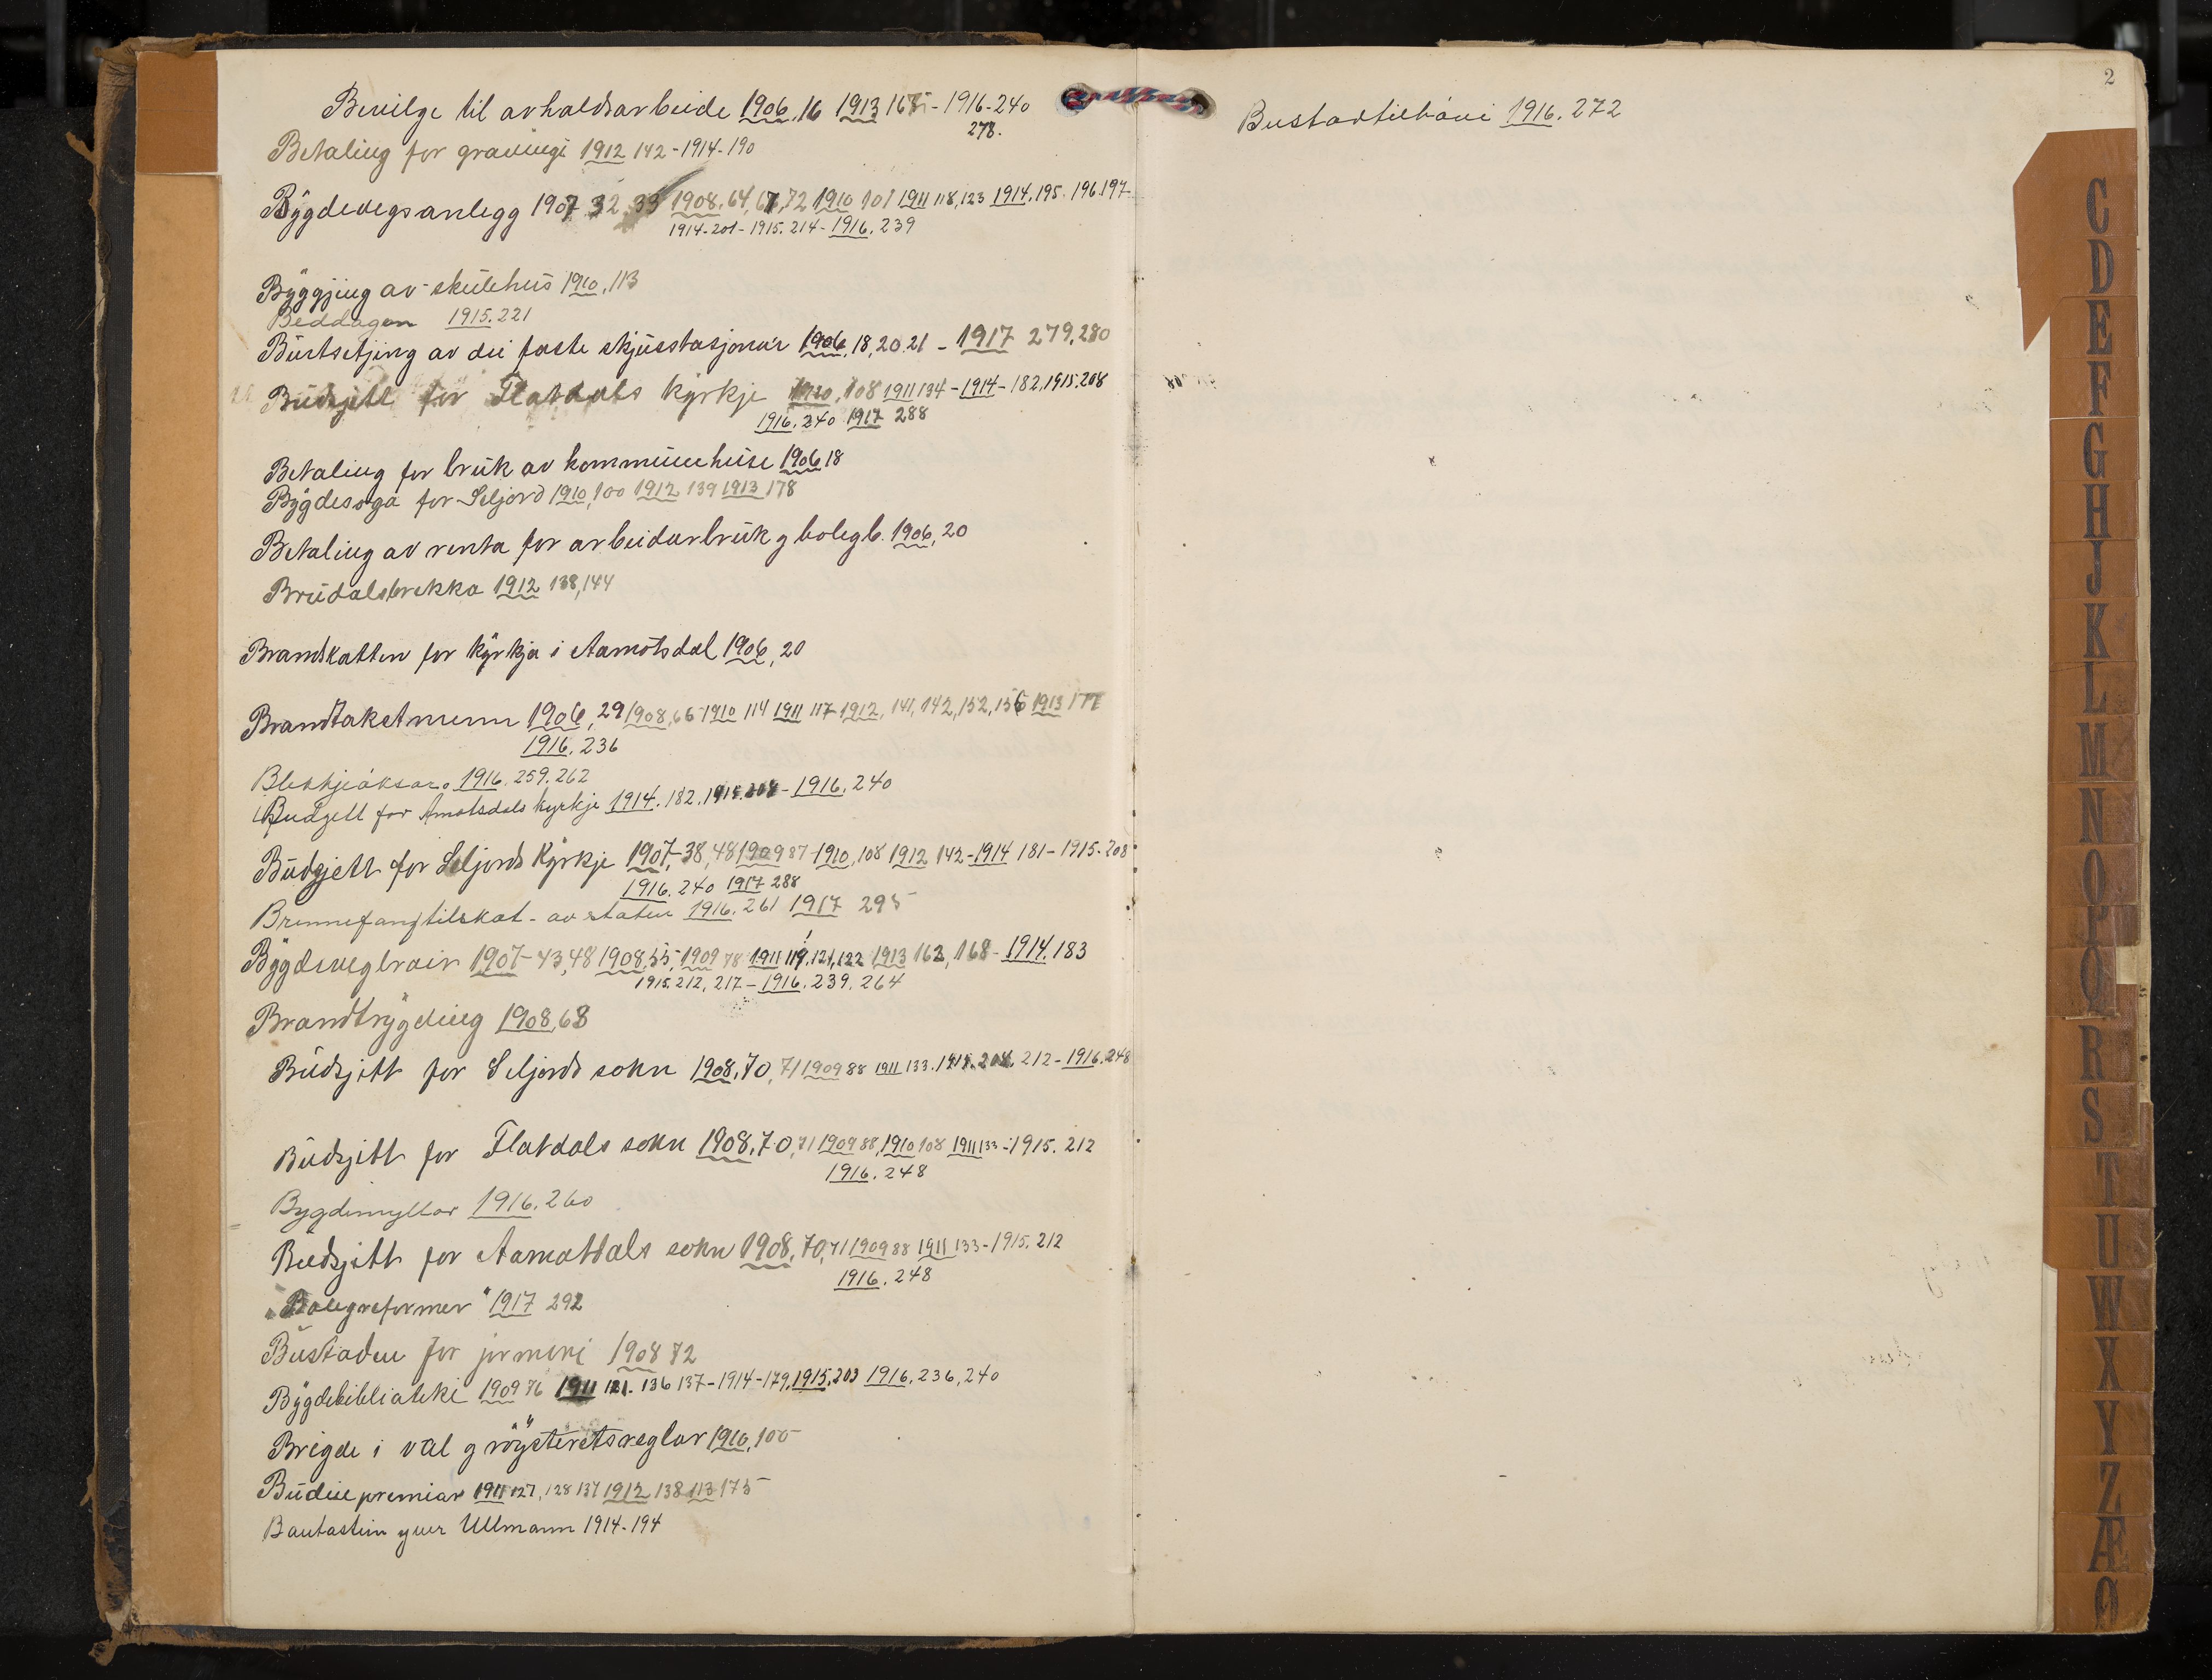 2
Bevilge til avhaldsarbeide 1906, 16 1913 165 - 1916 - 240
278.
Betaling for gravingi 1912 142 - 1914 - 190
Bygdevegsanlegg 1907 32, 33 1908, 64, 67, 72 1910 101 1911 118, 123 1914, 195. 196. 197
1914 - 201 - 1915. 214 - 1916. 239
Byggjing av skulehus 1910, 113
Beddagen 1915. 221
Burtsetjing av dei faste skjusstasjonar 1906, 18, 20, 21 - 1917 279, 280
Budsjett for Flatdals kyrkje 1910, 108 1911 134 - 1914 - 182, 1915, 208
1916. 240 1917 288
Betaling for bruk av kommunehuse 1906 18
Bygdesoga for Seljord 1910, 100 1912 139 1913 178
Betaling av renta for arbeidarbruk g bolegl. 1906, 20
Brudalsbrekka 1912 138, 144
Brandskatten for kyrkja i Aamotsdal 1906, 20
Brandtakstmenn 1906, 29 1908, 66 1910 114 1911 117 1912, 141, 142, 152, 156 1913 177
1916. 236
1916. 259. 262
Budgett for Amotsdals kyrkje 1914. 182. 1915. 208 - 1916. 240
Budsjett for Seljords kyrkje 1907, 38, 48 1909 87 1910, 108 1912 142 - 1914 181 - 1915 - 208
1916. 240 1917 288
Brennefangtilskot - av staten 1916. 261 1917 295
Bygdevegbrair 1907 - 43, 48 1908, 55, 1909 78 1911 119, 121, 122 1913 162, 168 - 1914. 183
1915. 212, 217 - 1916. 239. 264
Brandtrygding 1908, 68
Budsjett for Seljords sokn 1908, 70, 71 1909 88 1911 133. 1915. 208, 212 - 1916. 248
Budsjett for Flatdals sokn 1908, 70, 71 1909 88, 1910 108 1911 133 - 1915. 212
1916. 248
Bygdemyllar 1916. 260
Budsjett for Aamotdals sokn 1908, 70, 71 1909 88 1911 133 - 1915. 212
1916. 248
"Bolegreformer" 1917 292
Bustaden for jormori 1908 72
Bygdebiblioteki 1909 76 1911 121. 136 137 - 1914 - 179, 1915, 203 1916. 236, 240
Brigde i val g röysteretsreglar 1910, 100
Budeiepremiar 1911 127, 128 137 1912 138 113 175
Bautastein yver Ullmann 1914 - 194
1916. 272
C
D
E
F
G
H
J
K
L
M
N
O
P
Q
R
S
T
U
W
X
Y
Z
Æ
Ø